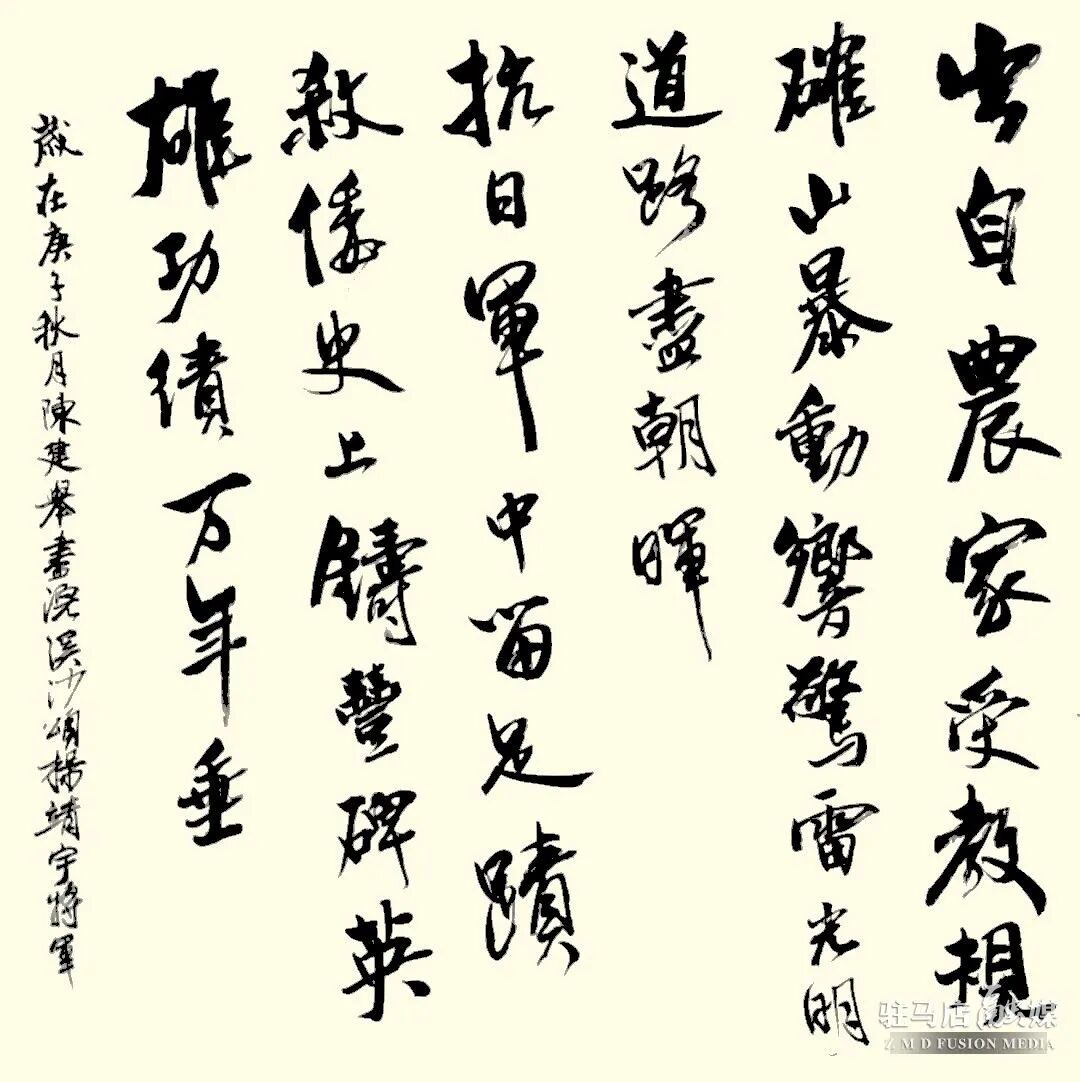 出自農家受教規
確山暴動響驚雷光明
道路盡朝暉
抗日軍中留足蹟
殺倭史上鑄豐碑英
雄功績万年垂
歲在庚子秋月陳建舉書浣溪沙頌楊靖宇將軍
驻马店融媒
Z M D FUSION MEDIA